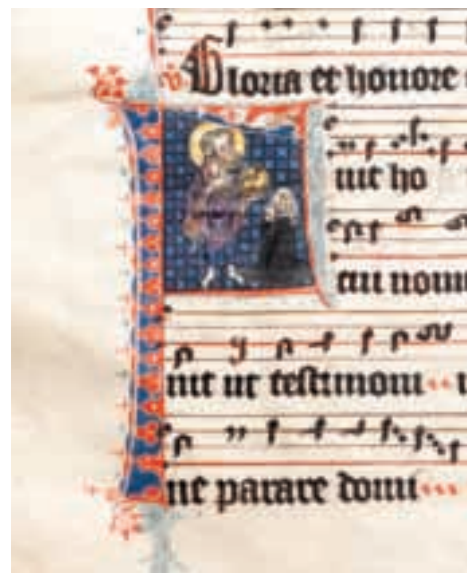 ℣ Gloria et honore
Fuit ho
cui nom
nit ut testimoni
ne parare domi